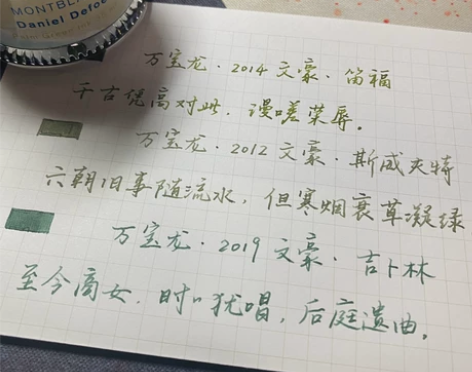 MONTBLANC
Daniel Defoe
万宝龙·2014文豪·笛福
千古凭高对此,谩嗟荣辱。
万宝龙·2012文豪·斯威夫特
六朝旧事随流水,但寒烟衰草凝绿
万宝龙·2019文豪·吉卜林
至今商女,时时犹唱,后庭遗曲。